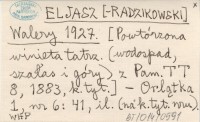 ELJASZ [-RADZIKOWSKI]
Walery 1927. [Powtórzona
winieta tatrz. (wodospad,
szałas i góry) z Pam. TT
8, 1883, k. tyt.] - Orlątka
1, nr 6: 41, il. (na k. tyt. nru).
WHP